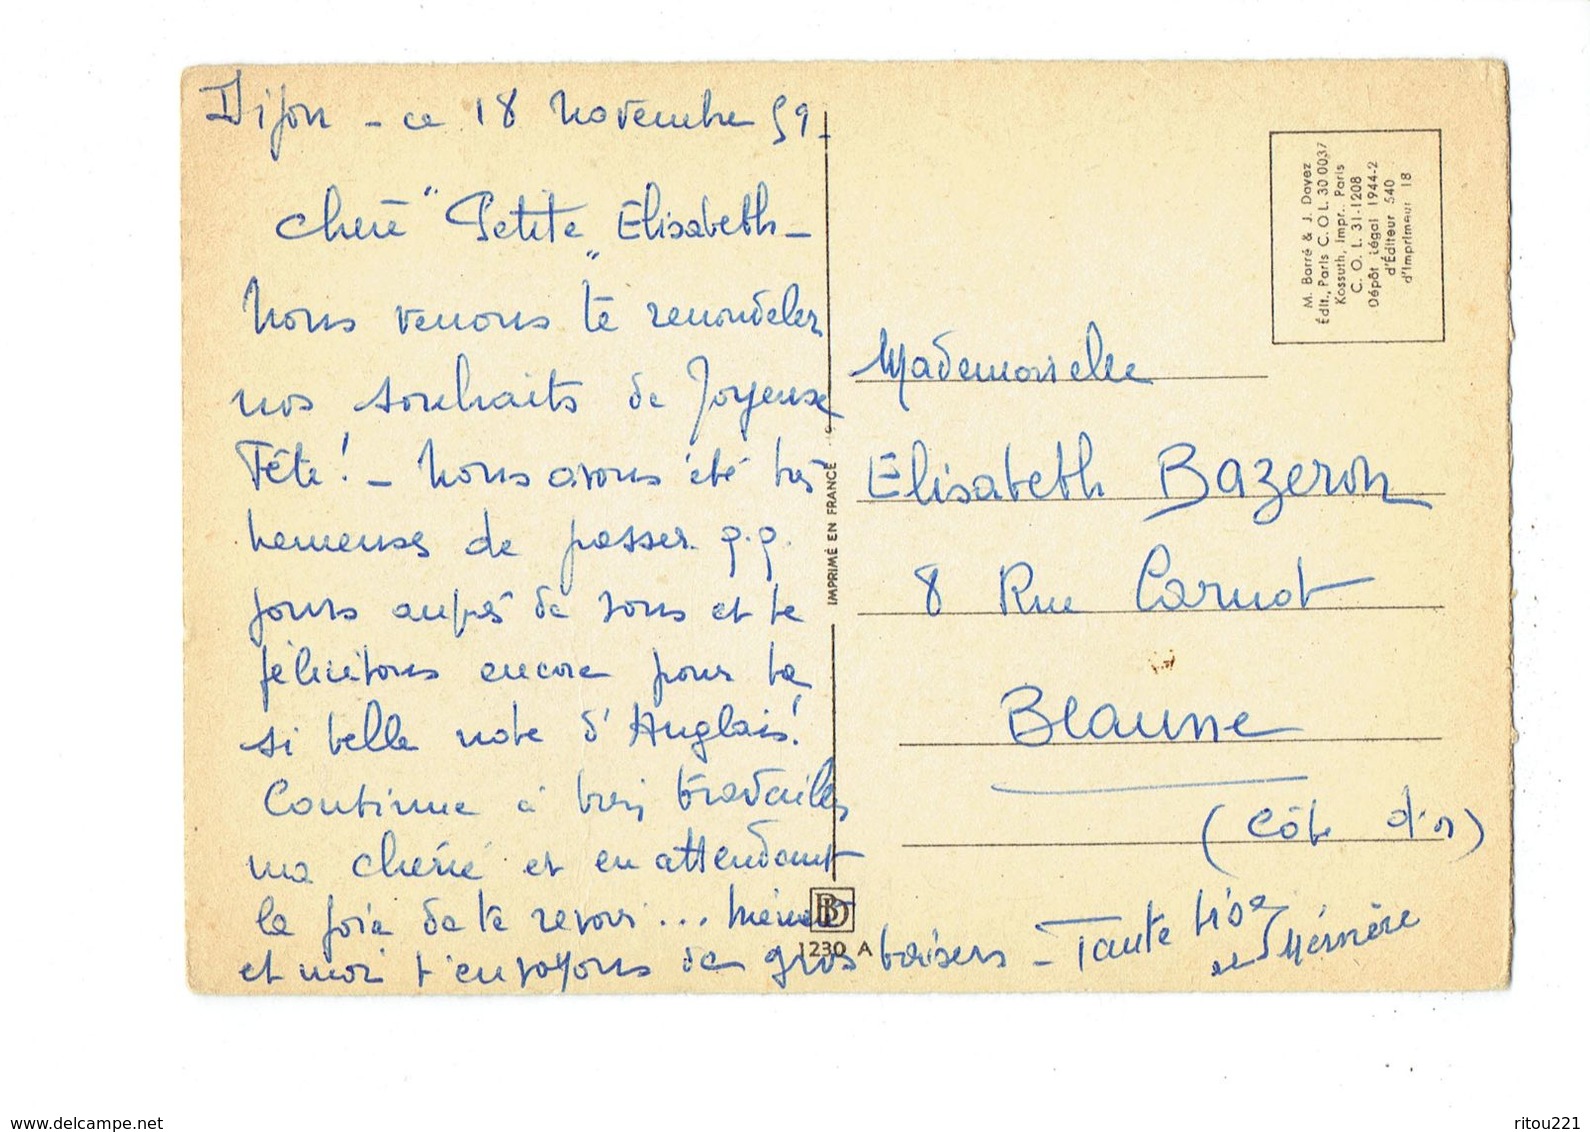 Dijon - ce 18 novembre 59 -
Chère "Petite" Elisabeth -
Nous venons te renouveler
nos souhaits de Joyeuse
Fête! - Nous avons été très
heureuses de passer q.q.
jours auprès de vous et te
félicitons encore pour ta
si belle note d'Anglais!
Continue à bien travailler
ma chérie et en attendant
la joie de te revoir ...
et moi t'envoyons de gros baisers - Tante
et Mémère
M. Barré & J. Dayez
Édit., Paris C.O.L. 30 0037
Kossuth, Impr., Paris
C. O. L. 31-1208
Dépôt légal 1944-2
d'Éditeur 540
d'Imprimeur 18
Mademoiselle
Elisabeth Bazeron
8 Rue Carnot
Beaune
(Côte d'or)
IMPRIMÉ EN FRANCE
BD
1230 A
www.delcampe.net
ritou221